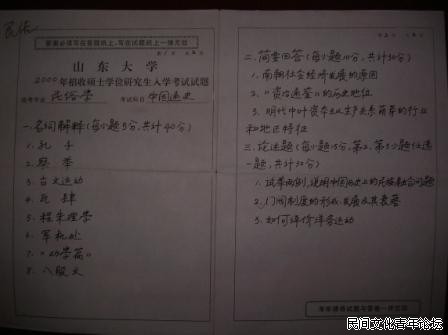 民俗
答案必须写在答题纸上,写在试题纸上一律无效
山东大学
2000年招收硕士学位研究生入学考试试题
报考专业 民俗学 考试科目 中国通史
一.名词解释(每小题5分,共计40分)
1. 孔子
2. 察举
3. 古文运动
4. 瓦肆
5. 程朱理学
6. 军机处
7. "劝学篇"
8. 八股文
二.简要回答(每小题10分,共计30分)
1. 南朝社会经济发展的原因
2. 《资治通鉴》的历史地位
3. 明代中叶资本主义生产关系萌芽的行业
和地区特征
三.论述题(每小题15分,第2、第3小题任选
一题,共计30分)
1. 试举两例,说明中国历史上的民族融合问题
2. 门阀制度的形成、发展及其衰落
3. 如何评价洋务运动
考生答题试题与答卷一律交回
民间文化青年论坛